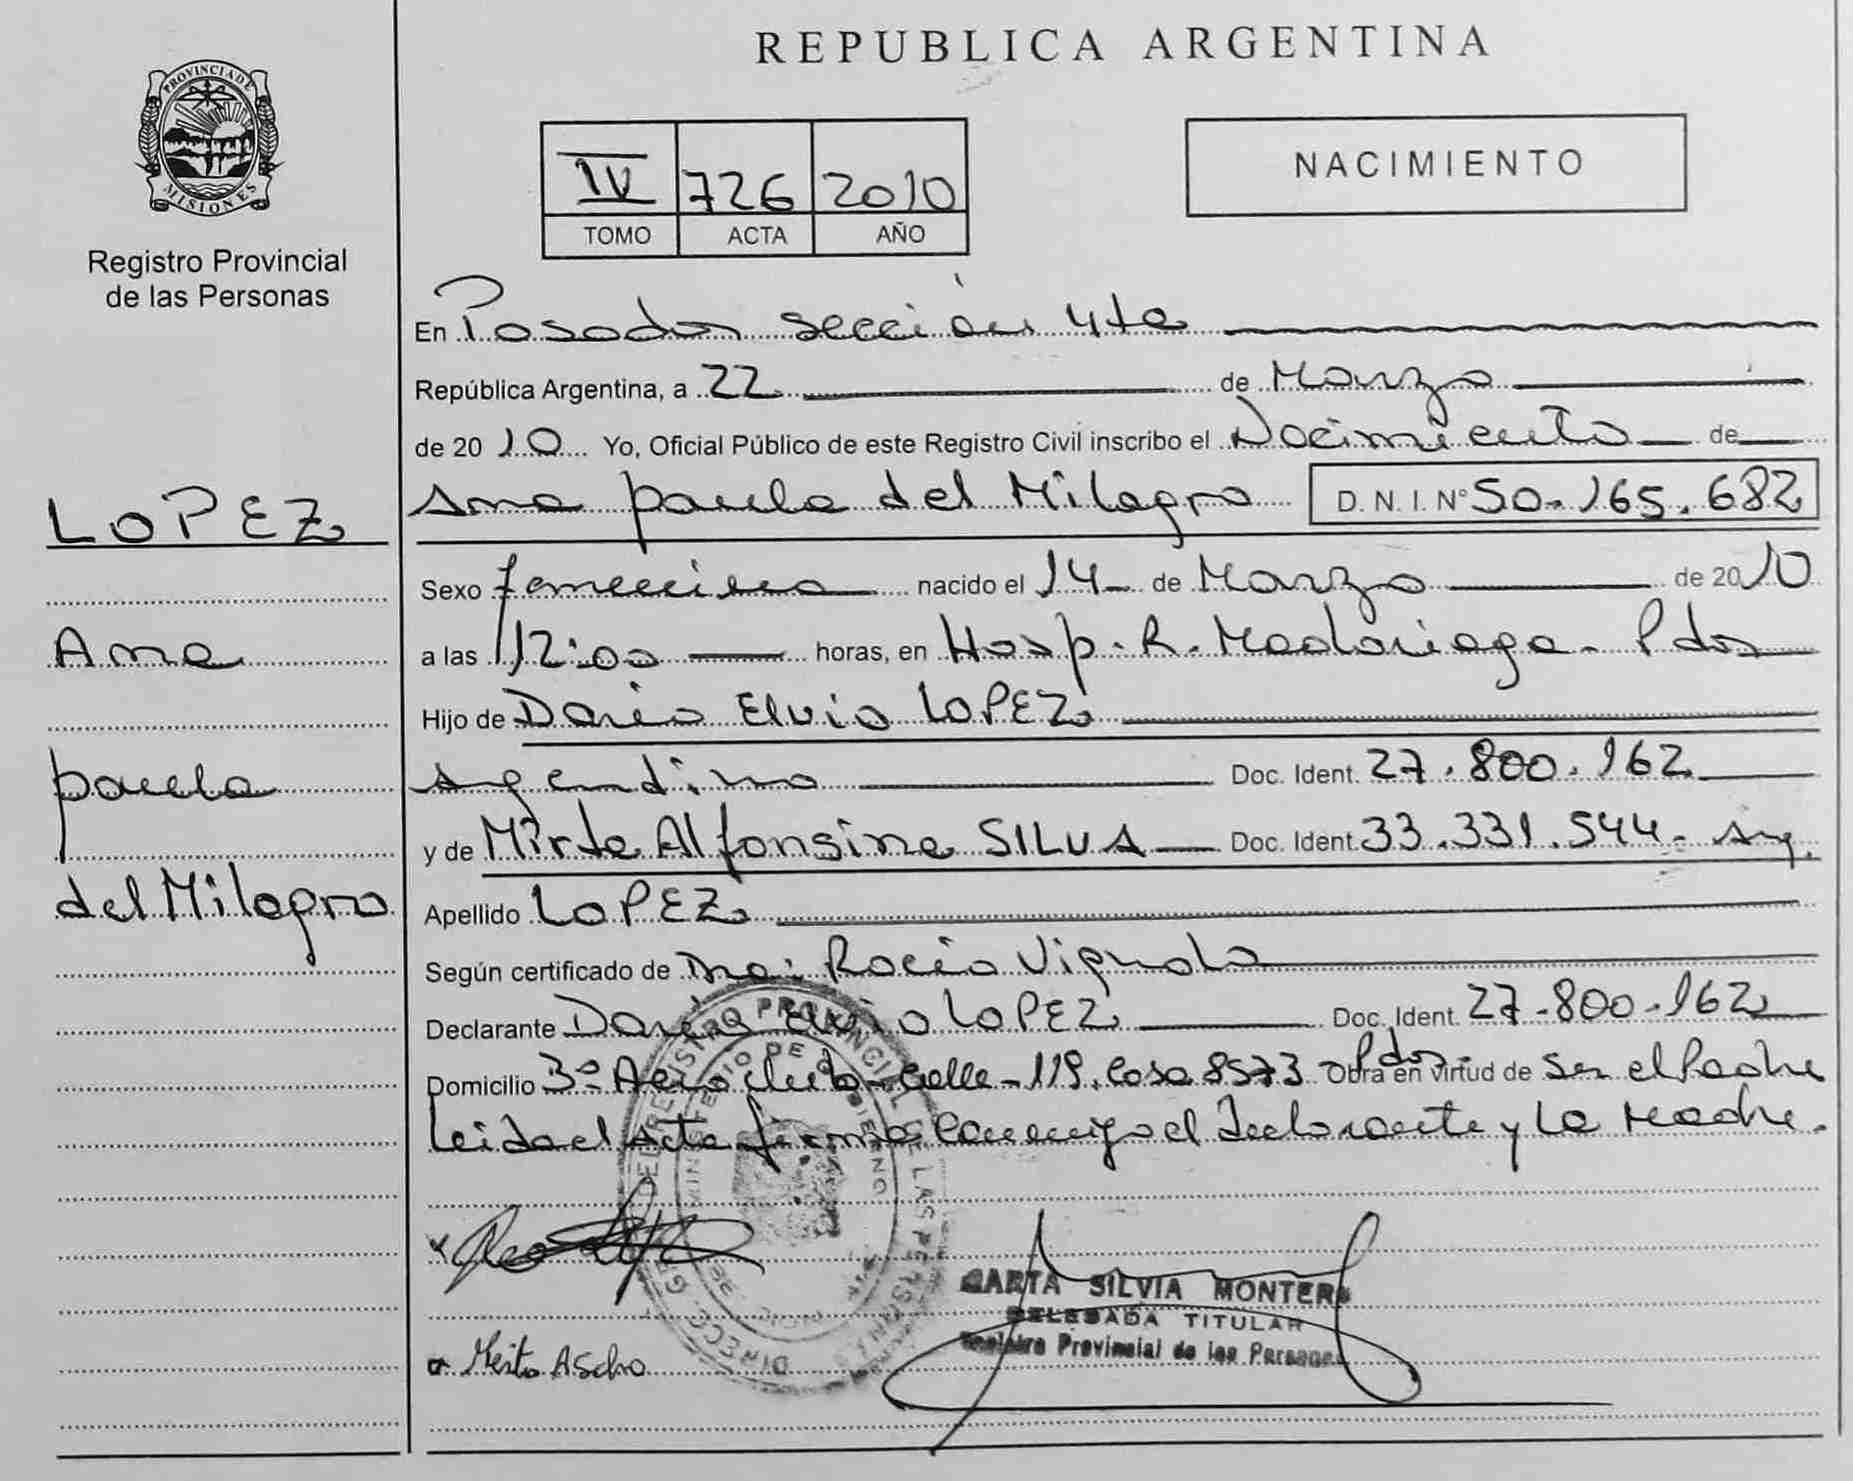 REPUBLICA ARGENTINA
PROVINCIA DE MISIONES
Registro Provincial
de las Personas
IV 726 2010
TOMO ACTA AÑO
NACIMIENTO
LOPEZ
Ana
paula
del Milagro
En Posadas sección 4ta
República Argentina, a 22 de Marzo
de 2010 Yo, Oficial Público de este Registro Civil inscribo el Nacimiento de
Ana paula del Milagro D. N. I. Nº 50.165.682
Sexo femenino nacido el 14 de Marzo de 2010
a las 12:00 horas, en Hosp. R. Madariaga - Pdas
Hijo de Dario Elvio LOPEZ
argentino Doc. Ident. 27.800.162
y de Mirta Alfonsina SILVA Doc. Ident. 33.331.544 - arg.
Apellido LOPEZ
Según certificado de Dra: Rocío Vignola
Declarante Dario Elvio LOPEZ Doc. Ident. 27.800.162
Domicilio 3º Aeroclub - Calle - 119. Casa 8573 Pdas Obra en virtud de Ser el Padre
Leida el Acta firma Conmigo el Declarante y La Madre.
MARTA SILVIA MONTERO
DELEGADA TITULAR
Registro Provincial de las Personas